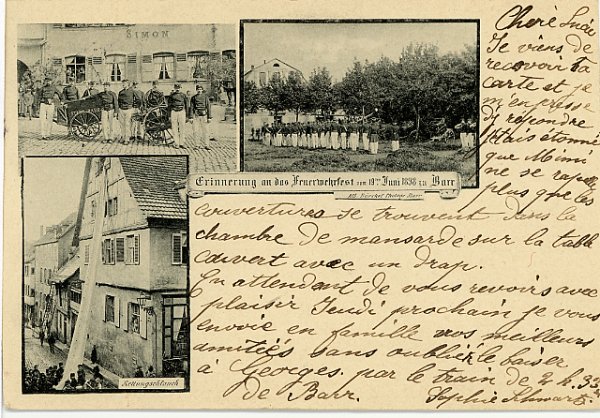 SIMON
Erinnerung an das Feuerwehrfest am 19ten Juni 1898 zu Barr
Rettungsschlauch
Je viens de
recevoir ta
carte et je
m'en presse
d'y repondre
étais étonné
que Mimi
ne se rapelle
plus que les
couvertures se trouvent dans la
chambre de mansarde sur la table
couvert avec un drap.
En attendant de vous revoirs avec
plaisir Jeudi prochain je vous
envoie en famille nos meilleurs
amitiés sans oublié le baiser
à Georges. par le train de 2 h. 33
de Barr. Sophie Schwartz